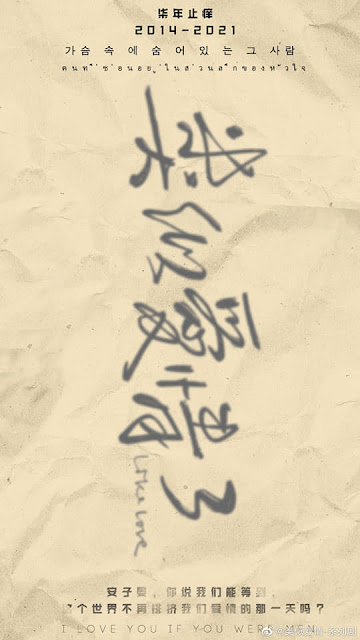 柒年止痒
2014-2021
가슴 속에 숨어 있는 그 사람
คนที่ซ่อนอยู่ในส่วนลึกของหัวใจ
类似爱情3
Like Love
安子 ，你说我们能等到
这个世界不再排挤我们爱情的那一天吗？
I LOVE YOU IF YOU WERE MEN